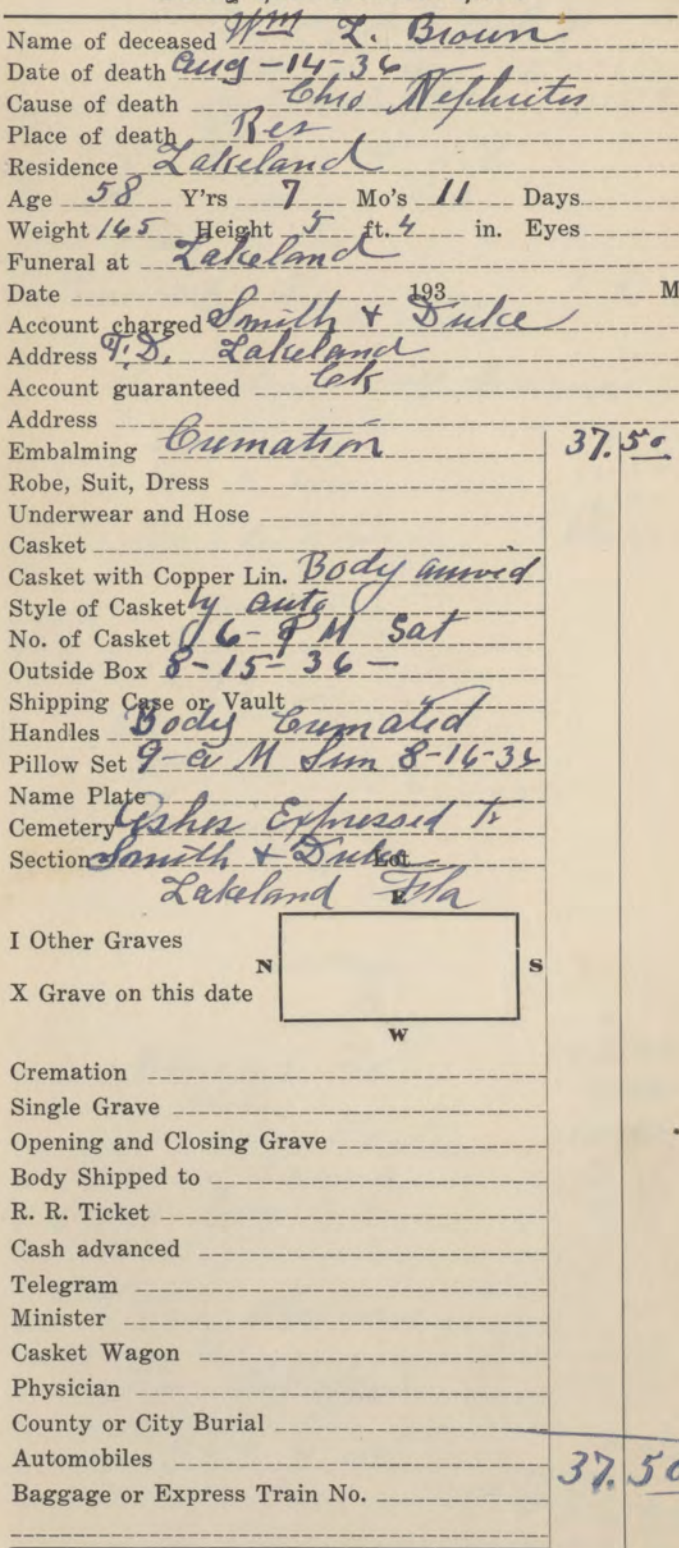 Name of deceased Wm L. Brown
Date of death Aug-14-36
Cause of death Chro Nephritis
Place of death Res
Residence Lakeland
Age 58 Y'rs 7 Mo's 11 Days
Weight 165 Height 5 ft. 4 in. Eyes
Funeral at Lakeland
Date 193 M
Account charged Smith & Duke
Address F.D. Lakeland
Account guaranteed Ck
Address
Embalming Cremation 37.50
Robe, Suit, Dress
Underwear and Hose
Casket
Casket with Copper Lin. Body arrived
Style of Casket by auto
No. of Casket 6-PM Sat
Outside Box 8-15-36-
Shipping Case or Vault
Handles Body Cremated
Pillow Set 9-a M Sun 8-16-36
Name Plate
Cemetery Ashes Expressed to
Section Smith & Duke Lot
Lakeland Fla
E
I Other Graves
N S
X Grave on this date
W
Cremation
Single Grave
Opening and Closing Grave
Body Shipped to
R. R. Ticket
Cash advanced
Telegram
Minister
Casket Wagon
Physician
County or City Burial
Automobiles 37.50
Baggage or Express Train No.